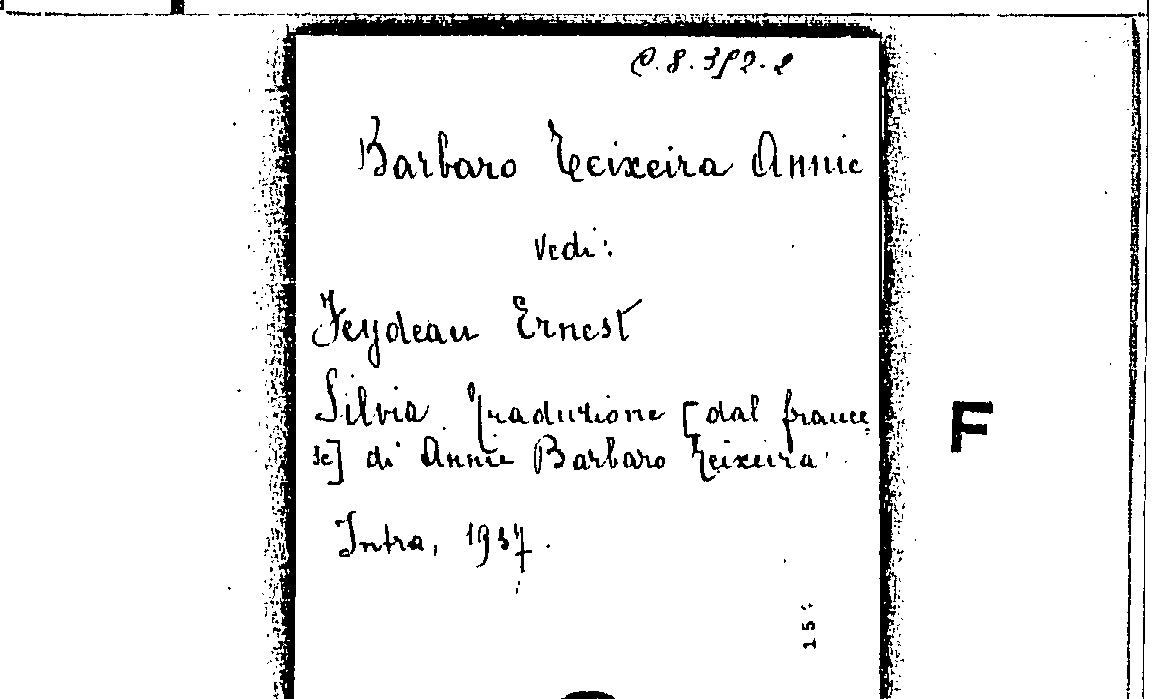 C.8.372.2
Barbaro Teixeira Annie
Vedi:
Feydeau Ernest
Silvia Traduzione [dal france
se] di Annie Barbaro Teixeira
Intra, 1937.
F